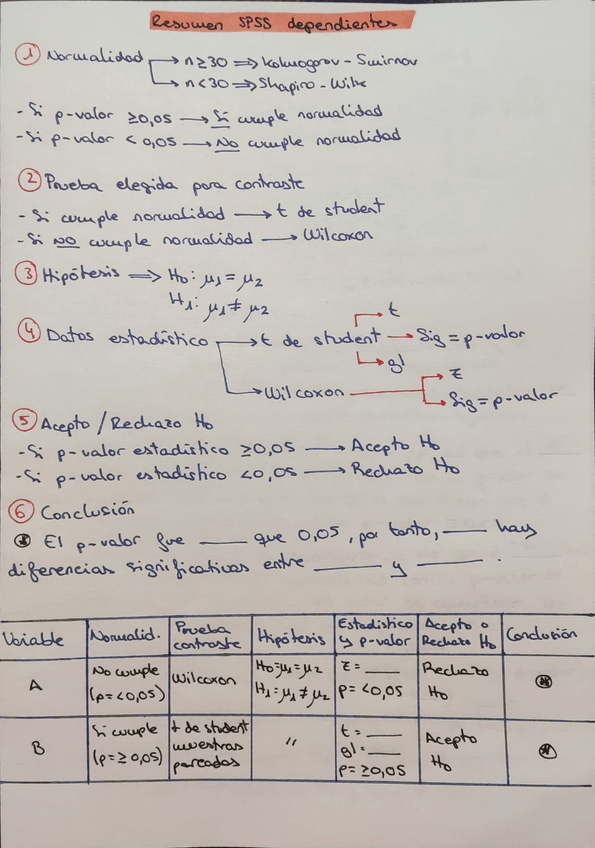 Resumen SPSS dependientes
① Normalidad → n ≥ 30 ⇒ Kolmogorov - Smirnov
→ n < 30 ⇒ Shapiro - Wilk
- Si p-valor ≥ 0,05 → Si cumple normalidad
- Si p-valor < 0,05 → No cumple normalidad
② Prueba elegida para contraste
- Si cumple normalidad → t de student
- Si NO cumple normalidad → Wilcoxon
③ Hipótesis ⇒ H₀: μ₁ = μ₂
H₁: μ₁ ≠ μ₂
④ Datos estadístico → t de student → t
→ Sig = p-valor
→ gl
→ Wilcoxon → z
→ Sig = p-valor
⑤ Acepto / Rechazo H₀
- Si p-valor estadístico ≥ 0,05 → Acepto H₀
- Si p-valor estadístico < 0,05 → Rechazo H₀
⑥ Conclusión
⊛ El p-valor fue ____ que 0,05, por tanto, ____ hay
diferencias significativas entre ____ y ____.
Variable | Normalid. | Prueba contraste | Hipótesis | Estadístico y p-valor | Acepto o Rechazo H₀ | Conclusión
A | No cumple (p = <0,05) | Wilcoxon | H₀ = μ₁ = μ₂ H₁: μ₁ ≠ μ₂ | z = ____ p = <0,05 | Rechazo H₀ | ⊛
B | Si cumple (p = ≥ 0,05) | t de student muestras pareadas | " | t = ____ gl = ____ p = ≥0,05 | Acepto H₀ | ⊛